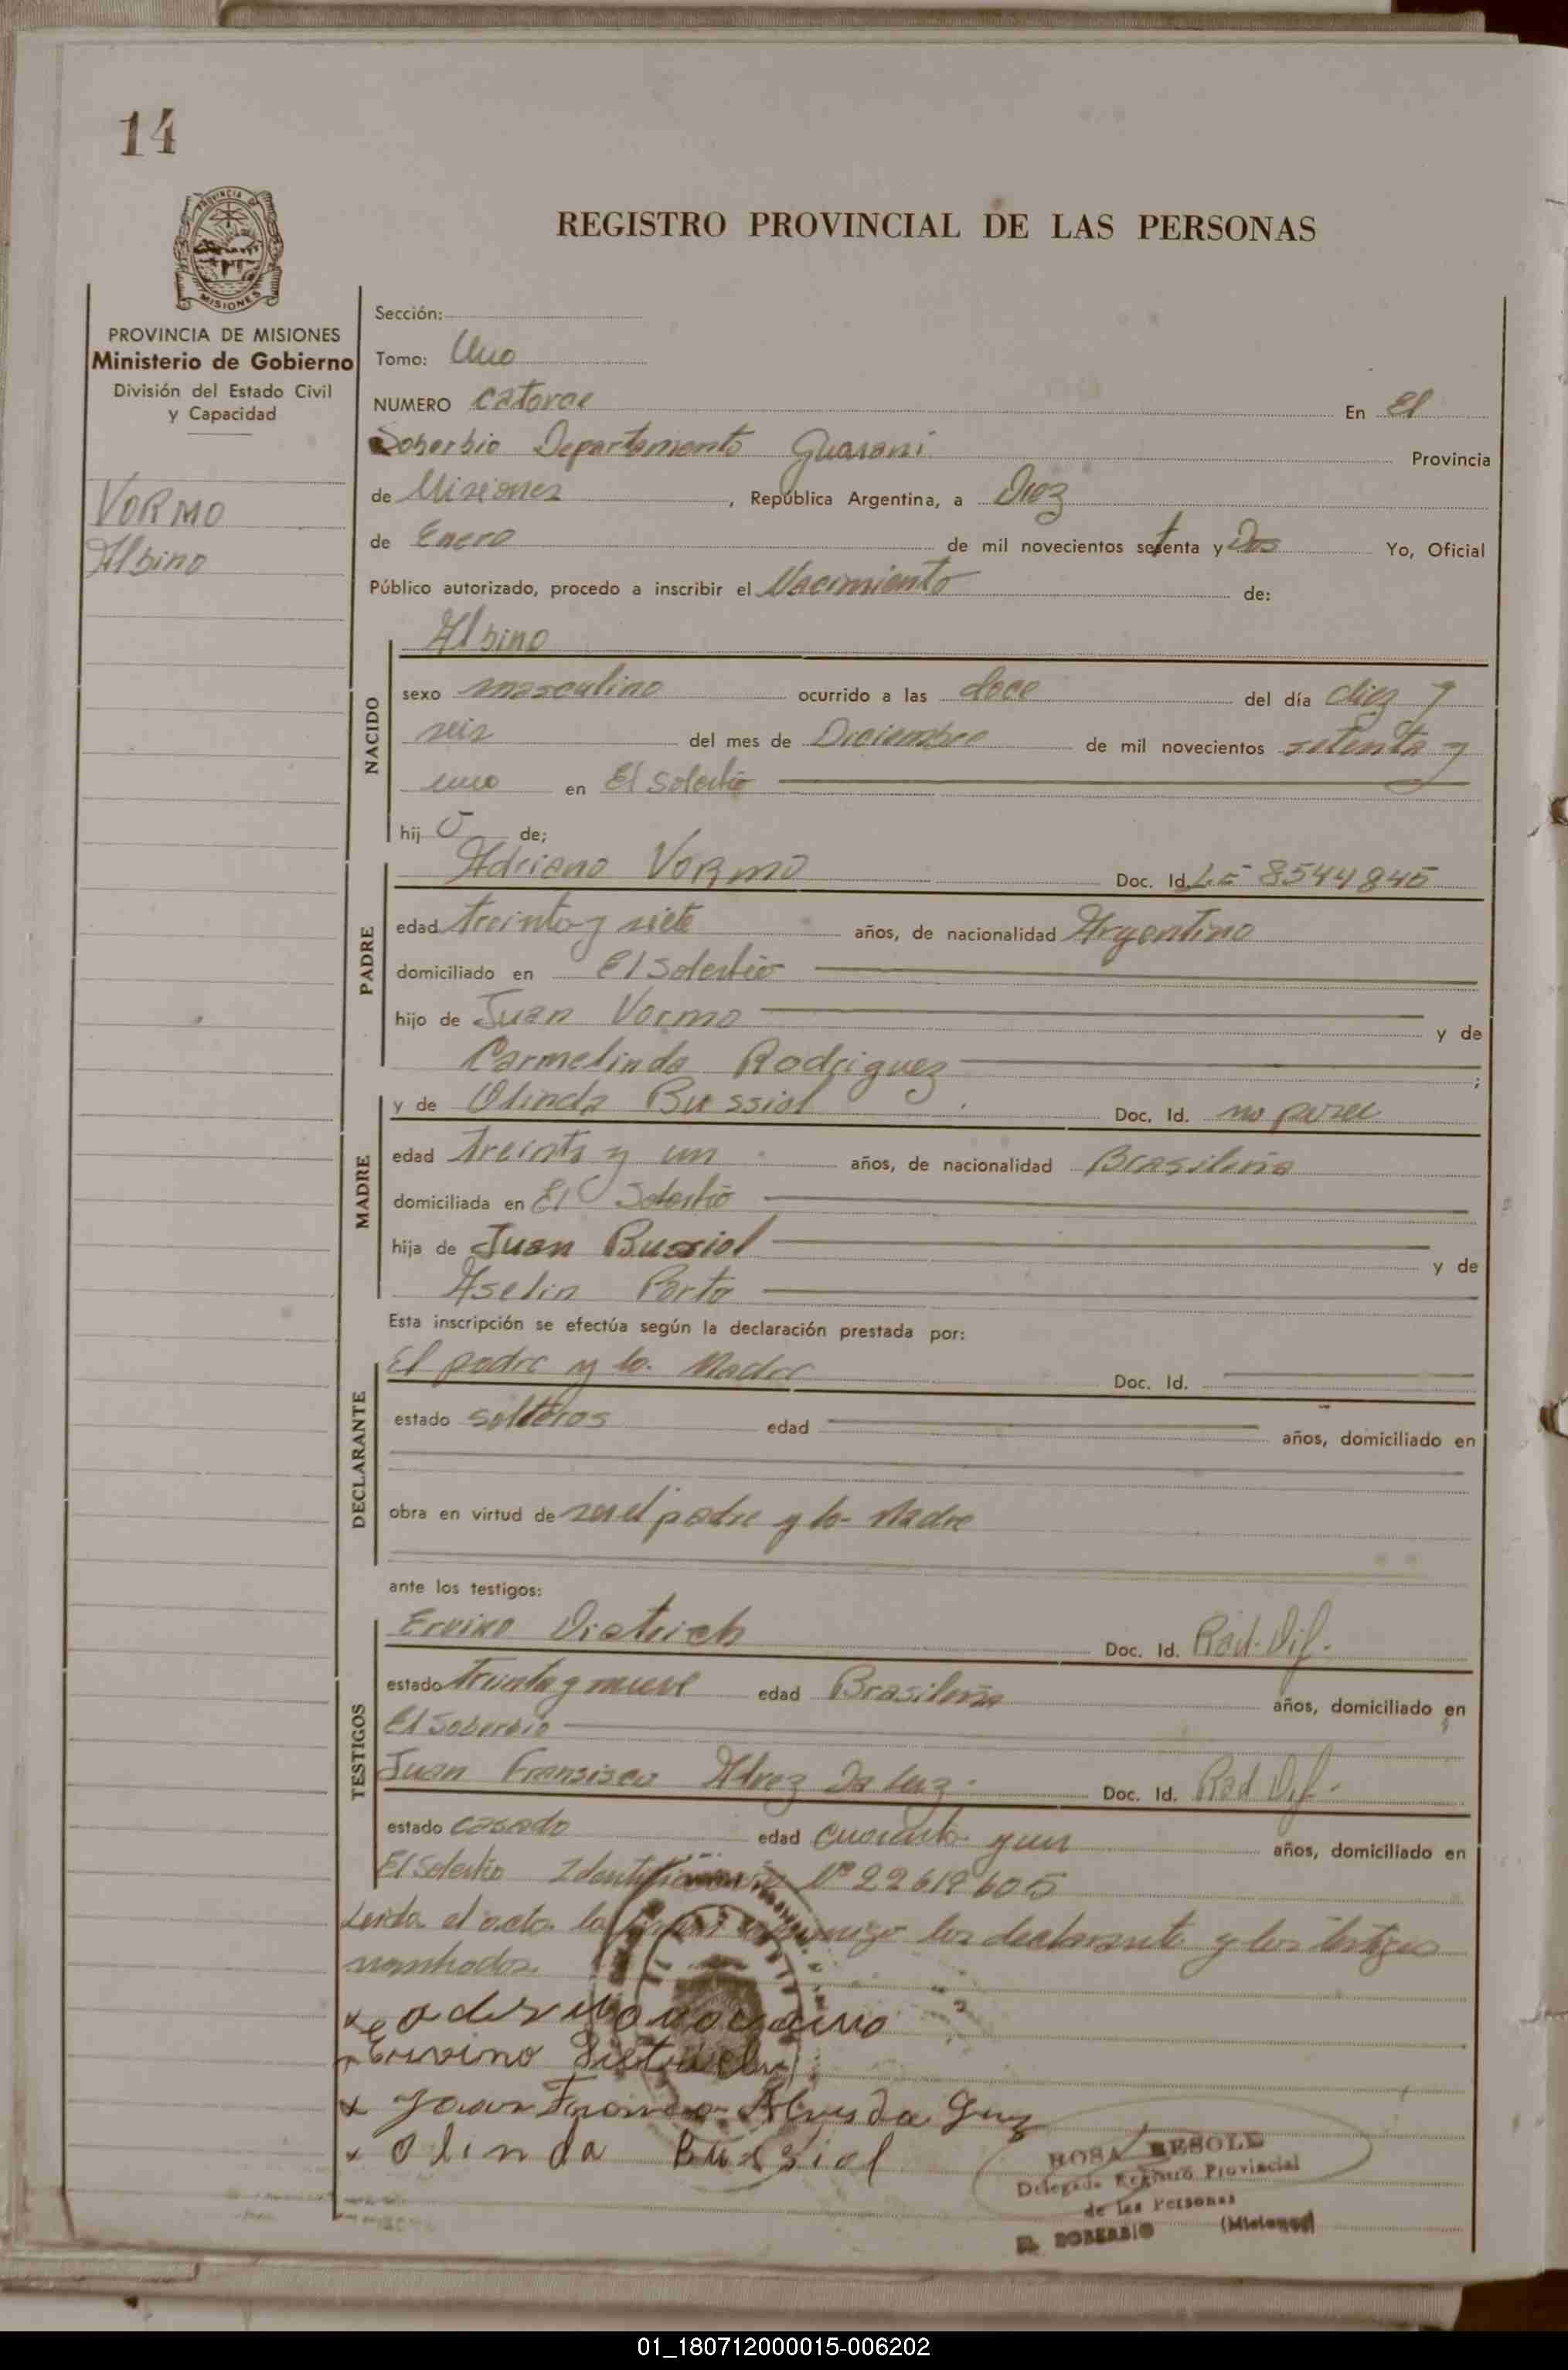 14
PROVINCIA DE
MISIONES
REGISTRO PROVINCIAL DE LAS PERSONAS
PROVINCIA DE MISIONES
Ministerio de Gobierno
División del Estado Civil
y Capacidad
VORMO
Albino
Sección:
Tomo: Uno
NUMERO catorce En El
Soberbio Departamento Guarani Provincia
de Misiones, República Argentina, a Diez
de Enero de mil novecientos setenta y Dos Yo, Oficial
Público autorizado, procedo a inscribir el Nacimiento de:
Albino
NACIDO
sexo masculino ocurrido a las doce del día diez y
seis del mes de Diciembre de mil novecientos setenta y
uno en El Soberbio
hij o de;
PADRE
Adriano VORMO Doc. Id. L.E 8544845
edad treinta y siete años, de nacionalidad Argentino
domiciliado en El Soberbio
hijo de Juan Vormo y de
Carmelinda Rodriguez ;
MADRE
y de Olinda Bussiol Doc. Id. no posee
edad treinta y un años, de nacionalidad Brasileña
domiciliada en El Soberbio
hija de Juan Bussiol y de
Aselin Porto
Esta inscripción se efectúa según la declaración prestada por:
DECLARANTE
El padre y la Madre Doc. Id.
estado solteros edad años, domiciliado en
obra en virtud de ser el padre y la Madre
ante los testigos:
TESTIGOS
Ervino Dietrich Doc. Id. Rad. Dif.
estado treinta y nueve edad Brasileña años, domiciliado en
El Soberbio
Juan Fransisco Alvez Da Luz. Doc. Id. Rad Dif.
estado casado edad cuarenta y un años, domiciliado en
El Soberbio Nº 22619605
Leida el acta la los declarante y los testigos
nombrados.
Ervino
Juan Alves da
Olinda Bussiol
ROSA BESOLD
Delegada Registro Provincial
de las Personas
EL SOBERBIO (Misiones)
01_180712000015-006202